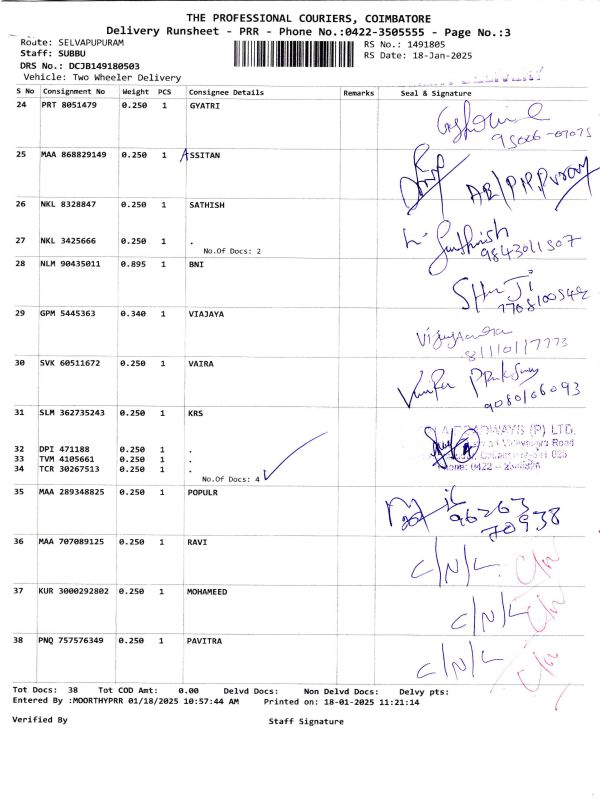 THE PROFESSIONAL COURIERS, COIMBATORE
Delivery Runsheet - PRR - Phone No.:0422-3505555 - Page No.:3
Route: SELVAPUPURAM
RS No.: 1491805
Staff: SUBBU
RS Date: 18-Jan-2025
DRS No.: DCJB149180503
Vehicle: Two Wheeler Delivery
DELIVERY
S No Consignment No Weight PCS Consignee Details Remarks Seal & Signature
24 PRT 8051479 0.250 1 GYATRI
95006-07075
25 MAA 868829149 0.250 1 ASSITAN
26 NKL 8328847 0.250 1 SATHISH
27 NKL 3425666 0.250 1 .
No.Of Docs: 2
9843011507
28 NLM 90435011 0.895 1 BNI
29 GPM 5445363 0.340 1 VIAJAYA
8111017773
30 SVK 60511672 0.250 1 VAIRA
9080166093
31 SLM 362735243 0.250 1 KRS
(P) LTD.
Road
32 DPI 471188 0.250 1 .
33 TVM 4105661 0.250 1 .
34 TCR 30267513 0.250 1 .
No.Of Docs: 4
35 MAA 289348825 0.250 1 POPULR
96263
70938
36 MAA 707089125 0.250 1 RAVI
C/N/L
37 KUR 3000292802 0.250 1 MOHAMEED
C/N/L
38 PNQ 757576349 0.250 1 PAVITRA
C/N/L
Tot Docs: 38 Tot COD Amt: 0.00 Delvd Docs: Non Delvd Docs: Delvy pts:
Entered By :MOORTHYPRR 01/18/2025 10:57:44 AM Printed on: 18-01-2025 11:21:14
Verified By Staff Signature